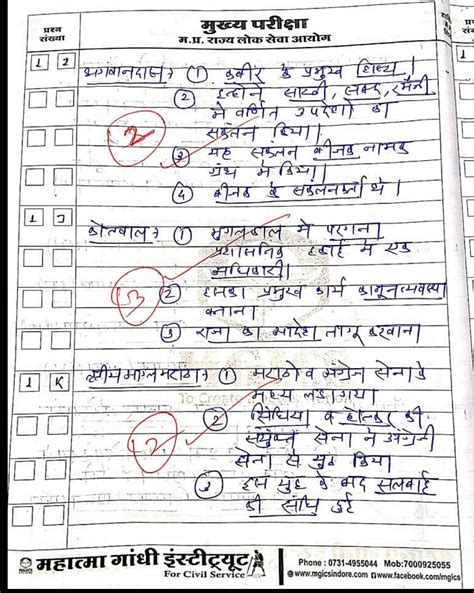 प्रश्न संख्या
मुख्य परीक्षा
म.प्र. राज्य लोक सेवा आयोग
1 I
भगवानदास → ① कबीर के प्रमुख शिष्य।
② इन्होने साखी, सबद, रमैनी
में वर्णित उपदेशों का
संकलन किया।
2
③ यह संकलन बीजक नामक
ग्रंथ में किया।
④ बीजक के संकलनकर्ता थे।
1 J
कोतवाल → ① मुगलकाल में परगना
प्रशासनिक इकाई में एक
अधिकारी।
3
② इसका प्रमुख कार्य कानून व्यवस्था
बनाना।
③ राजा का आदेश लागू करवाना।
1 K
① मराठो व अंग्रेज सेना के
मध्य लड़ा गया।
② सिंधिया व होल्कर की
संयुक्त सेना ने अंग्रेजी
सेना से युद्ध किया
2
③ इस युद्ध के बाद सलबाई
की संधि हुई
महात्मा गांधी इंस्टीट्यूट
For Civil Service
Phone : 0731-4955044 Mob:7000925055
www.mgicsindore.com www.facebook.com/mgics